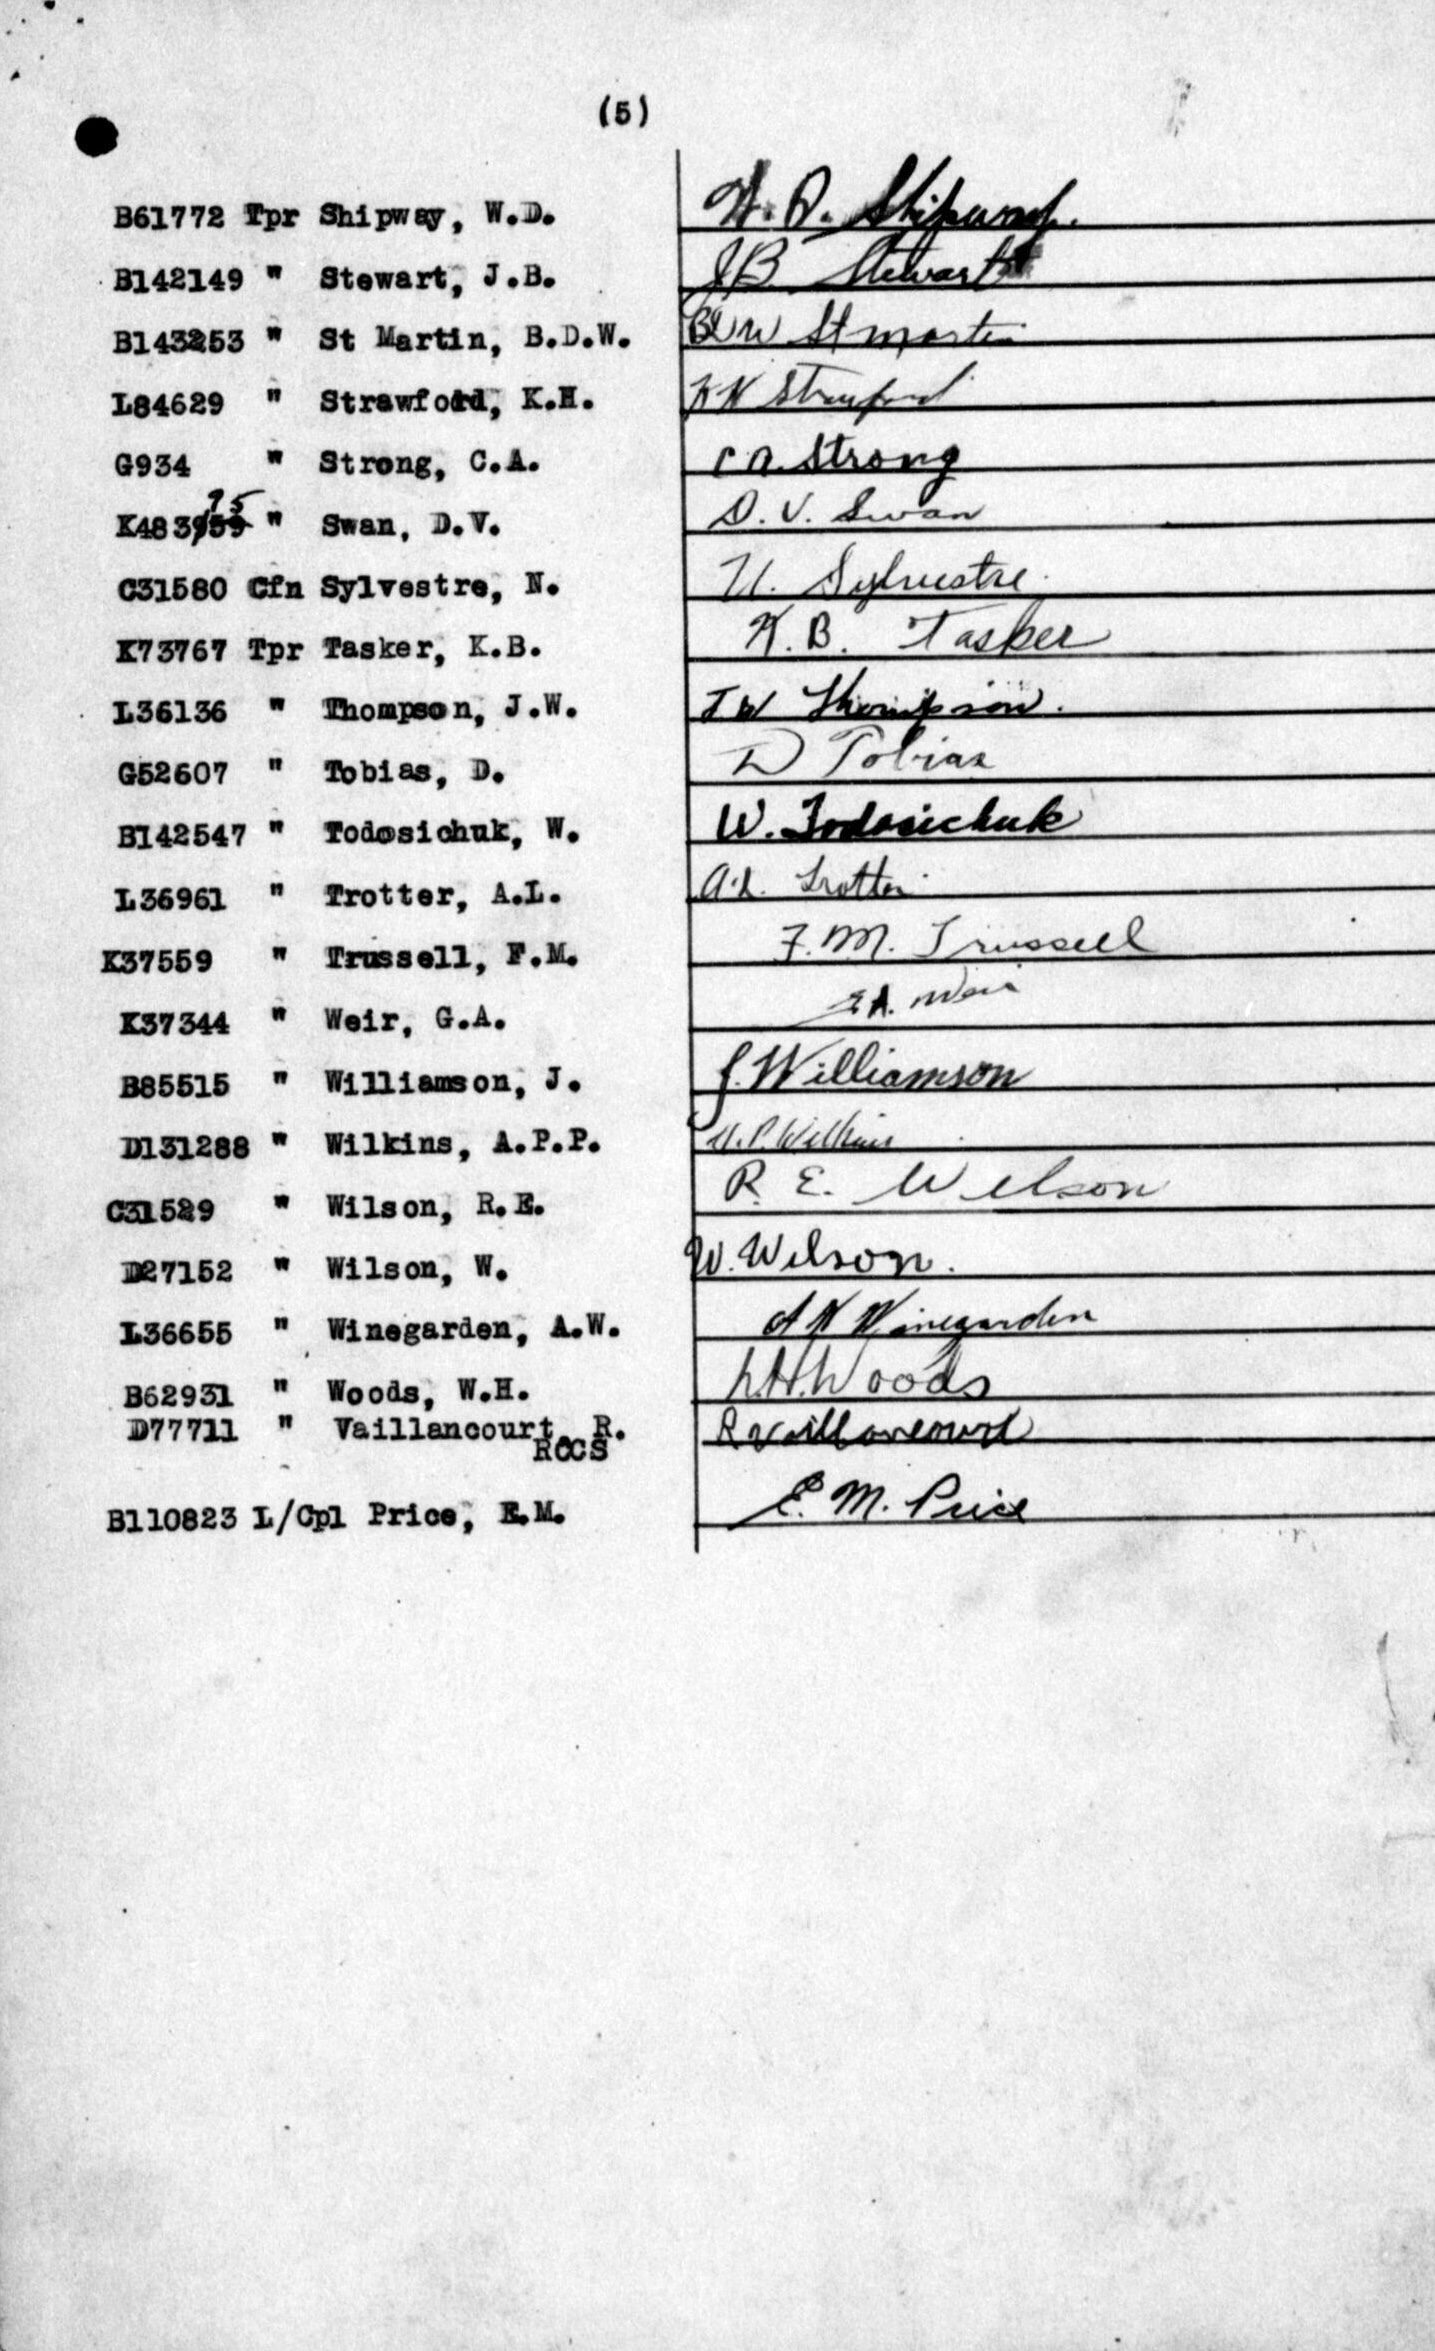 (5)
B61772 Tpr Shipway, W.D. W. D. Shipway.
B142149 " Stewart, J.B. JB Stewart
B143253 " St Martin, B.D.W. BDW St Martin
L84629 " Strawford, K.H. KH Strawford
G934 " Strong, C.A. C A Strong
75
K483959 " Swan, D.V. D. V. Swan
C31580 Cfn Sylvestre, N. N. Sylvestre.
K73767 Tpr Tasker, K.B. K. B. Tasker
L36136 " Thompson, J.W. J W Thompson.
G52607 " Tobias, D. D Tobias
B142547 " Todosichuk, W. W. Todosichuk
L36961 " Trotter, A.L. A.L. Trotter
K37559 " Trussell, F.M. F. M. Trussell
K37344 " Weir, G.A. G A. Weir
B85515 " Williamson, J. J. Williamson
D131288 " Wilkins, A.P.P. Wilkins
C31529 " Wilson, R.E. R. E. Wilson
D27152 " Wilson, W. W. Wilson.
L36655 " Winegarden, A.W. A W Winegarden
B62931 " Woods, W.H. W.H. Woods
D77711 " Vaillancourt, R. R Vaillancourt
RCCS
B110823 L/Cpl Price, E.M. E. M. Price